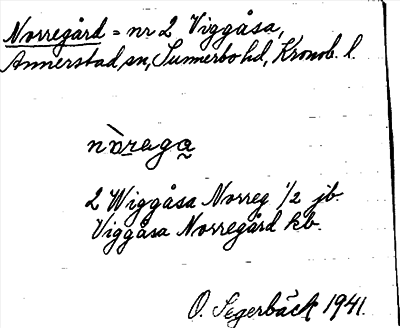 Norregård = nr 2 Viggåsa,
Annerstad sn, Sunnerbo hd, Kronob. l.
nòraga̰
2 Wiggåsa Norreg 1/2 jb.
Viggåsa Norregård kb.
O. Segerbäck 1941.